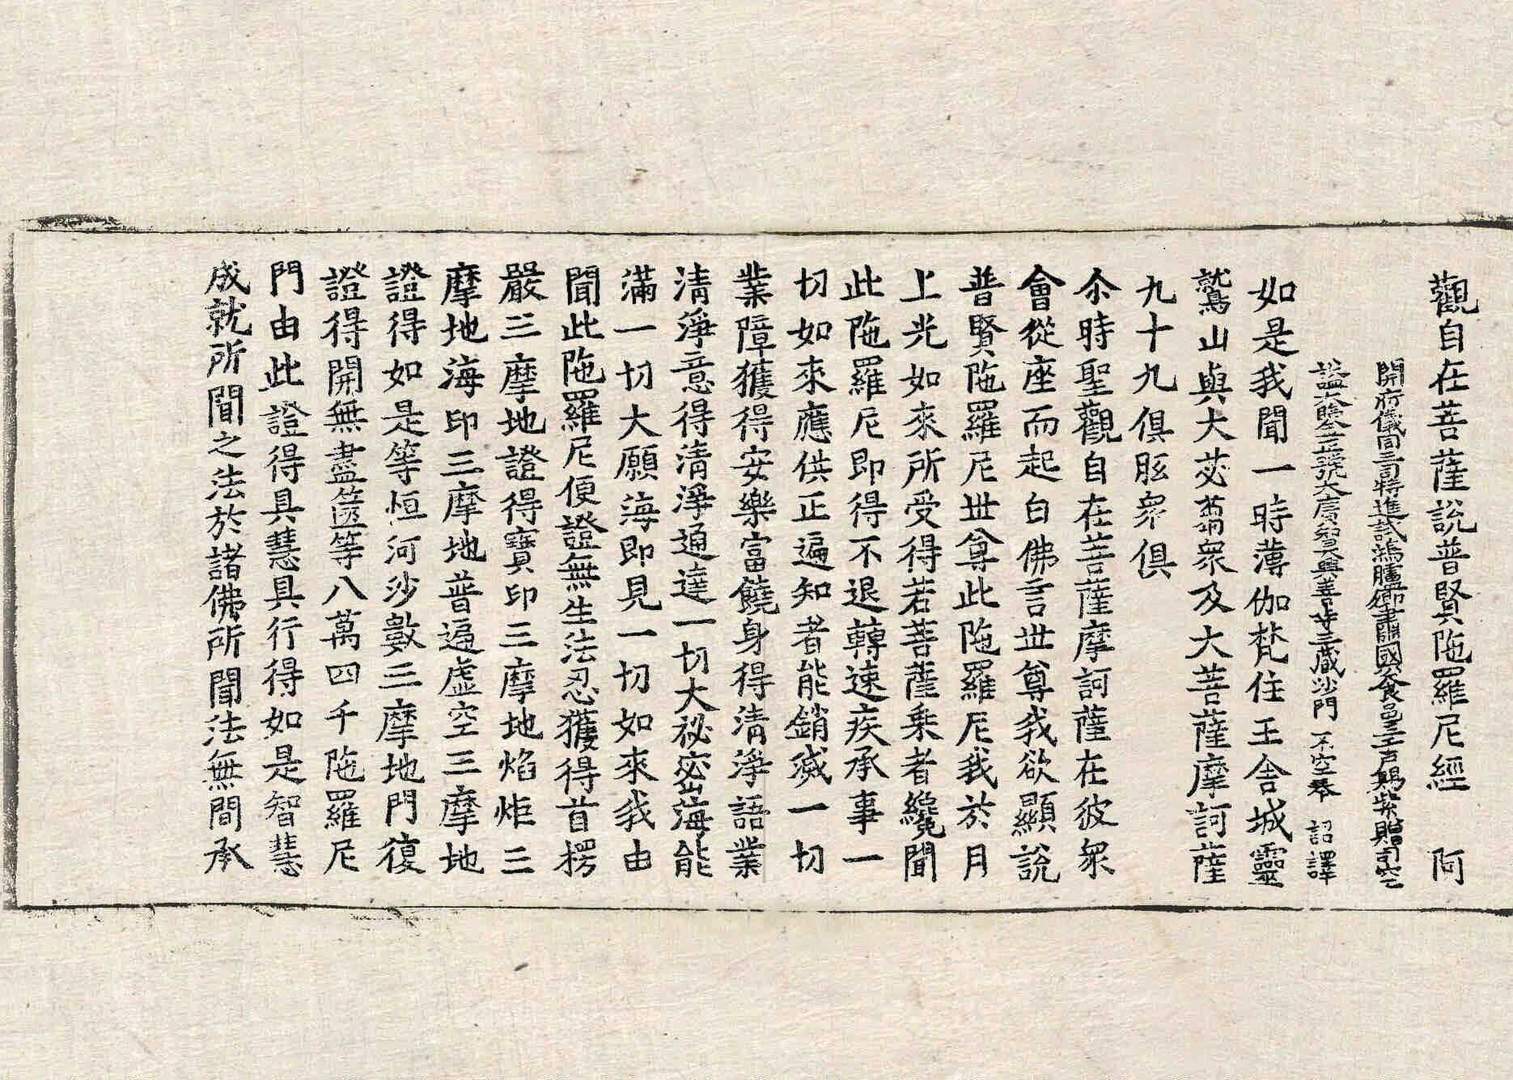 觀自在菩薩說普賢陁羅尼經　阿
開府儀同三司特進試鴻臚卿肅國公食邑三千戶賜紫贈司空
謚大鑒正號大廣智大興善寺三藏沙門　不空奉　詔譯
如是我聞一時薄伽梵住王舍城靈
鷲山與大苾蒭衆及大菩薩摩訶薩
九十九俱胝衆俱
尒時聖觀自在菩薩摩訶薩在彼衆
會從座而起白佛言世尊我欲顯說
普賢陁羅尼世尊此陁羅尼我於月
上光如來所受得若菩薩乘者纔聞
此陁羅尼即得不退轉速疾承事一
切如來應供正遍知者能銷滅一切
業障獲得安樂富饒身得清淨語業
清淨意得清淨通達一切大秘密海能
滿一切大願海即見一切如來我由
聞此陁羅尼便證無生法忍獲得首楞
嚴三摩地證得寶印三摩地焰炬三
摩地海印三摩地普遍虛空三摩地
證得如是等恒河沙數三摩地門復
證得開無盡篋等八萬四千陁羅尼
門由此證得具慧具行得如是智慧
成就所聞之法於諸佛所聞法無間承